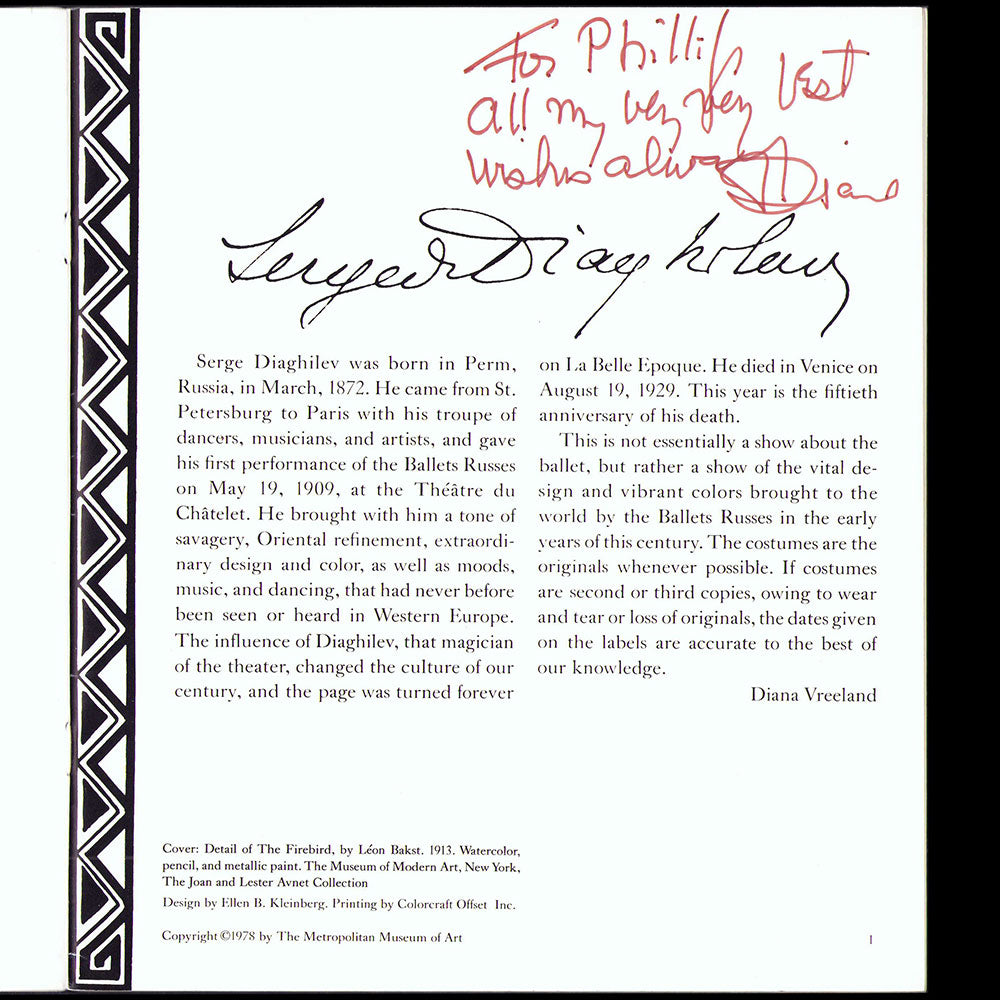 For Phillip
all my very very best
wishes always Diana
Serge Diaghilew
Serge Diaghilev was born in Perm,
Russia, in March, 1872. He came from St.
Petersburg to Paris with his troupe of
dancers, musicians, and artists, and gave
his first performance of the Ballets Russes
on May 19, 1909, at the Théâtre du
Châtelet. He brought with him a tone of
savagery, Oriental refinement, extraordi-
nary design and color, as well as moods,
music, and dancing, that had never before
been seen or heard in Western Europe.
The influence of Diaghilev, that magician
of the theater, changed the culture of our
century, and the page was turned forever
on La Belle Epoque. He died in Venice on
August 19, 1929. This year is the fiftieth
anniversary of his death.
This is not essentially a show about the
ballet, but rather a show of the vital de-
sign and vibrant colors brought to the
world by the Ballets Russes in the early
years of this century. The costumes are the
originals whenever possible. If costumes
are second or third copies, owing to wear
and tear or loss of originals, the dates given
on the labels are accurate to the best of
our knowledge.
Diana Vreeland
Cover: Detail of The Firebird, by Léon Bakst. 1913. Watercolor,
pencil, and metallic paint. The Museum of Modern Art, New York,
The Joan and Lester Avnet Collection
Design by Ellen B. Kleinberg. Printing by Colorcraft Offset Inc.
Copyright ©1978 by The Metropolitan Museum of Art
1